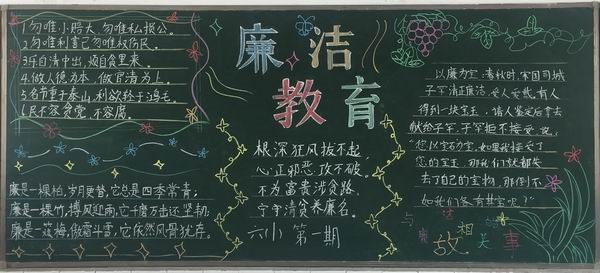 1.勿唯小赔大、勿唯私损公。
2.勿唯利害己勿唯权伤民。
3.乐自清中出，烦自贪里来。
4.做人德为本，做官清为上。
5.名节重于泰山，利欲轻于鸿毛。
6.民不容贪，党不容腐。
廉是一棵柏，岁月更替，它总是四季常青；
廉是一棵竹，搏风迎雨，它千磨万击还坚韧，
廉是一簇梅，傲霜斗雪，它依然风骨犹存。
廉洁
教育
根深狂风拔不起，
心正邪恶攻不破。
不为富贵涉贪路，
宁守清贫养廉名。
六(1) 第一期
以廉为宝：春秋时，宋国司城
子罕清正廉洁，受人爱戴。有人
得到一块宝玉，请人鉴定后拿去
献给子罕，子罕拒不接受，说：
“您以宝石为宝，如果我接受了
您的宝玉，那我们俩就都失
去了自己的宝物，那倒不
如我们各有其宝呢？”
与廉洁相关
故事